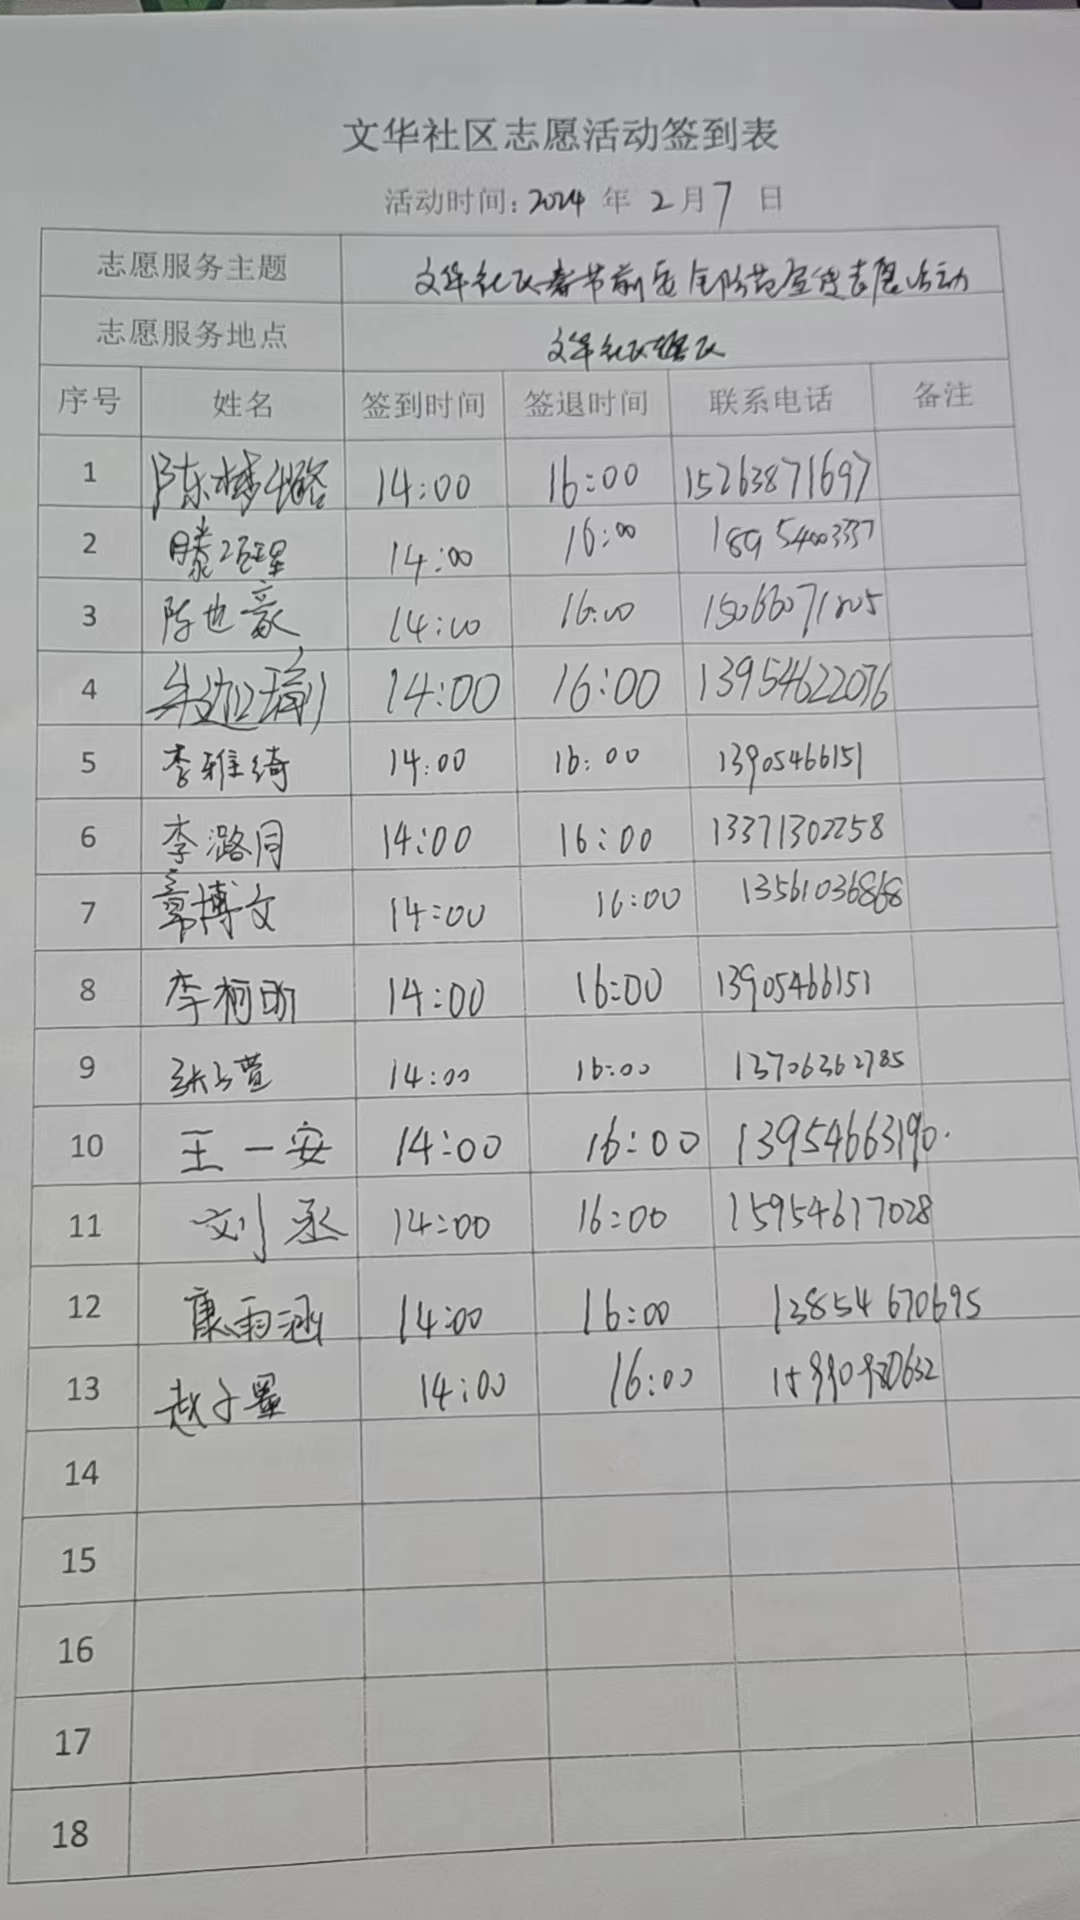 文华社区志愿活动签到表
活动时间: 2024 年 2 月 7 日
志愿服务主题 文华社区春节前安全防范宣传志愿活动
志愿服务地点 文华社区辖区
序号 姓名 签到时间 签退时间 联系电话 备注
1 陈梦璐 14:00 16:00 15263871697
2 滕 14:00 16:00 18954003337
3 陈也豪 14:00 16:00 15066071205
4 14:00 16:00 13954622076
5 李雅绮 14:00 16:00 13905466151
6 李潞同 14:00 16:00 13371302258
7 章博文 14:00 16:00 13561036868
8 李柯昕 14:00 16:00 13905466151
9 张子萱 14:00 16:00 13706362785
10 王一安 14:00 16:00 13954663190.
11 刘丞 14:00 16:00 15954617028
12 康雨涵 14:00 16:00 13854670695
13 赵子墨 14:00 16:00
14
15
16
17
18